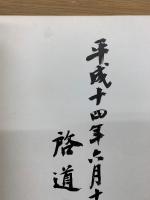 平成十四年六月十
啓道